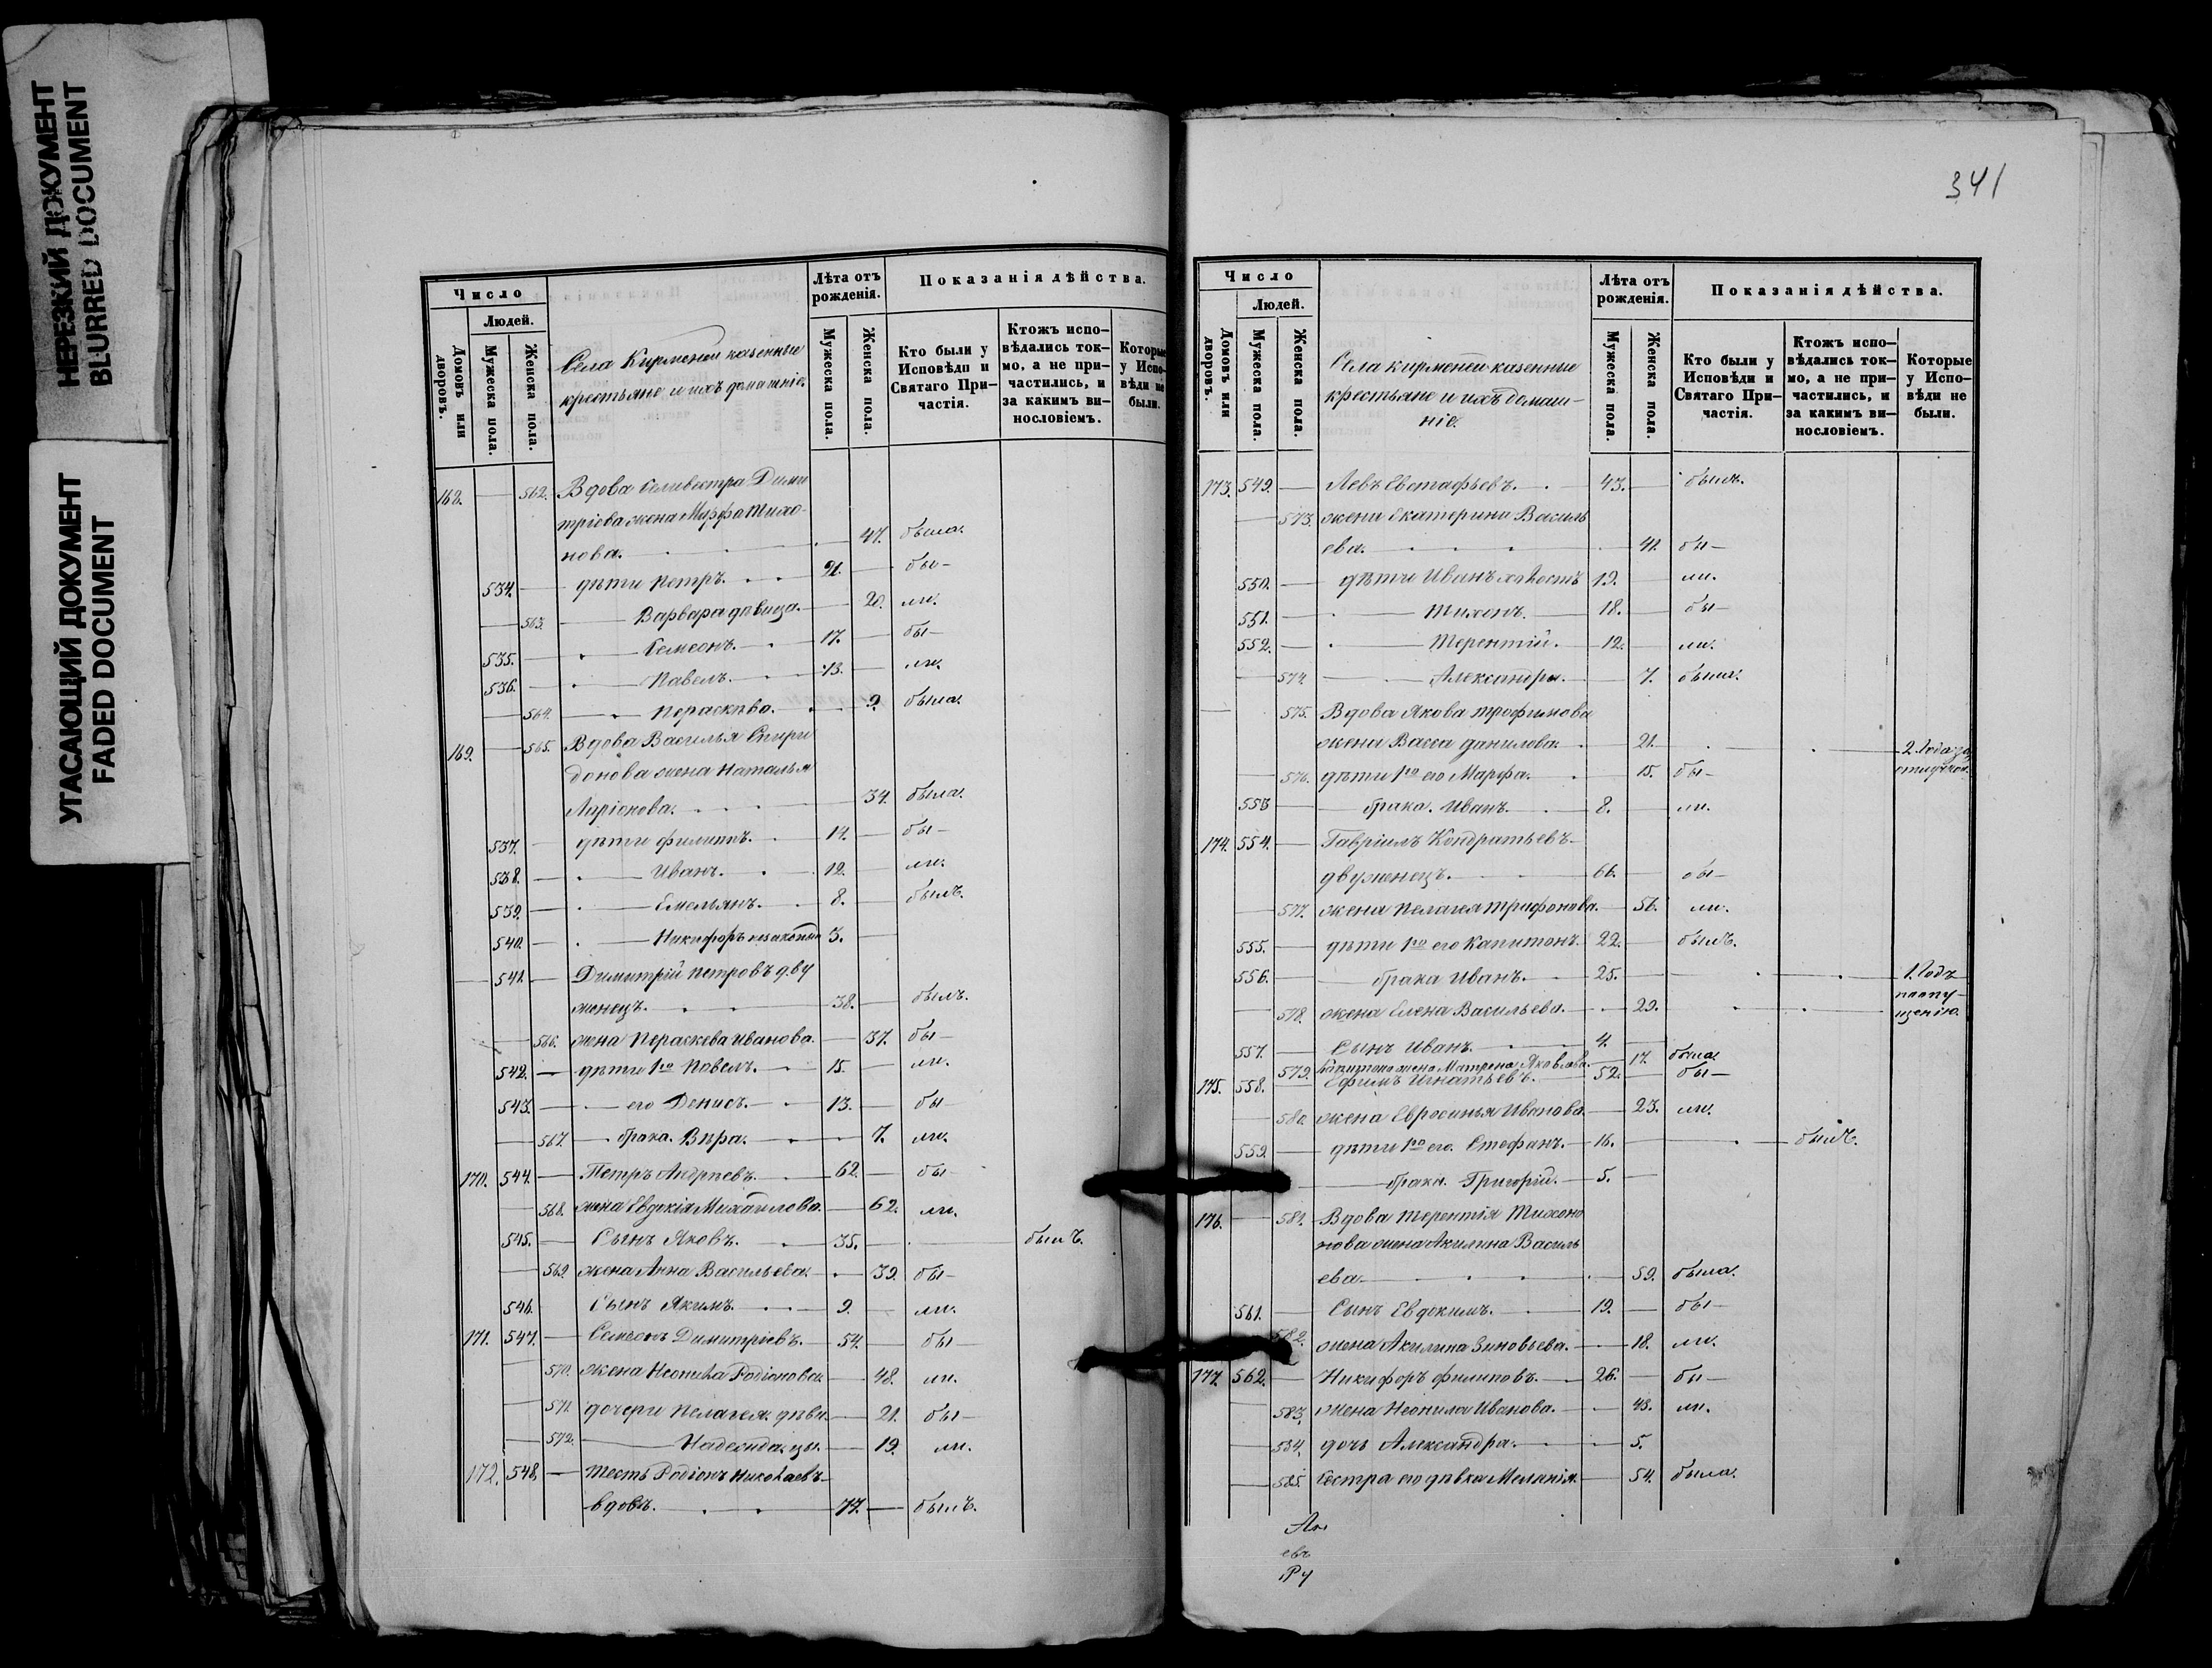 НЕРЕЗКИЙ ДОКУМЕНТ
BLURRED DOCUMENT
УГАСАЮЩИЙ ДОКУМЕНТ
FADED DOCUMENT
Число
Людей.
Домовъ или дворовъ.
Мужеска пола.
Женска пола.
Села Кирменей казенные
крестьяне и ихъ домашніе
Лѣта отъ рожденія.
Мужеска пола.
Женска пола.
Показанія дѣйства.
Кто были у Исповѣди и Святаго Причастія.
Ктожъ исповѣдались токмо, а не причастились, и за какимъ винословіемъ.
Которые у Исповѣди не были.
168. — 562. Вдова Селивестра Дими
тріева жена Марфа Тихо-
нова. 47. была.
534. — дѣти Петръ. 21. — бы-
— 563. Варвара дѣвица. — 20. ли.
535. — Семеонъ. 17. — бы-
536. — Павелъ. 13. — ли.
— 564. Параскева. 9. была.
169. — 565. Вдова Василья Спири
донова жена Наталья
Ларіонова. 34. была.
537. — дѣти Филиппъ. 14. — бы-
538. — Иванъ. 12. ли.
539. — Емельянъ. 8. былъ.
540. — Никифоръ 3. —
— 541. — Димитрій Петровъ дву
женецъ. 38. — былъ.
— 566. жена Параскева Иванова. — 37. бы-
542. — дѣти 1го Павелъ. 15. — ли.
543. — его Денисъ. 13. — бы-
— 567. брака. Вѣра. 7. ли.
170. 544. — Петръ Андреевъ. 62. — бы-
— 568. жена Евдокія Михаилова. — 62. ли.
545. — Сынъ Яковъ. 35. — былъ.
— 569. жена Анна Васильева. 39. бы-
546. Сынъ Якимъ. 9. — ли.
171. 547. — Семеонъ Димитріевъ. 54. — бы-
— 570. жена Неонила Родіонова. — 48. ли.
— 571. дочери Пелагея дѣви- — 21. бы-
— 572. Надежда цы. — 19. ли.
172. 548. — тесть Родіонъ Николаевъ
вдовъ. 77. — былъ.
341
Число
Людей.
Домовъ или дворовъ.
Мужеска пола.
Женска пола.
Села Кирменей казенные
крестьяне и ихъ домаш-
ніе.
Лѣта отъ рожденія.
Мужеска пола.
Женска пола.
Показанія дѣйства.
Кто были у Исповѣди и Святаго Причастія.
Ктожъ исповѣдались токмо, а не причастились, и за какимъ винословіемъ.
Которые у Исповѣди не были.
173. 549. — Левъ Евстафьевъ. 43. — былъ.
— 573. жена Екатерина Василь
ева. 41. бы-
550. — дѣти Иванъ холостъ 19. — ли.
551. — Тихонъ. 18. — бы-
552. — Терентій. 12. ли.
— 574. Александра. 7. была.
— 575. Вдова Якова Трофимова
жена Васса Данилова. 21. 2. Года за
отлучкой.
— 576. дѣти 1го его Марфа. 15. бы-
553 — брака. Иванъ. 8. ли.
174. 554. — Гавріилъ Кондратьевъ
двуженецъ. 66. — бы-
— 577. жена Пелагея Трифонова. 56. ли.
555. — дѣти 1го его Капитонъ. 22. — былъ.
556. — брака Иванъ. 25. — 1. Годъ
по опу-
щенію.
578. жена Елена Васильева. 29.
557. — Сынъ Иванъ. 4. —
579. Капитона жена Матрена Яковлева. 17. была
175. 558. — Ефимъ Игнатьевъ. 52. — бы-
— 580. жена Евросинья Иванова. — 23. ли.
559. — дѣти 1го его. Стефанъ. 16. — былъ.
брака. Григорій. 5. —
176. — 581. Вдова Терентія Тихоно
нова жена Акилина Василь
ева. 59. была.
561. — Сынъ Евдокимъ. 19. — бы-
582. жена Акилина Зиновьева. 18. ли.
177. 562. — Никифоръ Филиповъ. 26. — бы-
— 583. жена Неонила Иванова. 43. ли.
— 584. дочь Александра. 5.
— 585. Сестра его дѣвка Меланія. — 54. была.
евъ